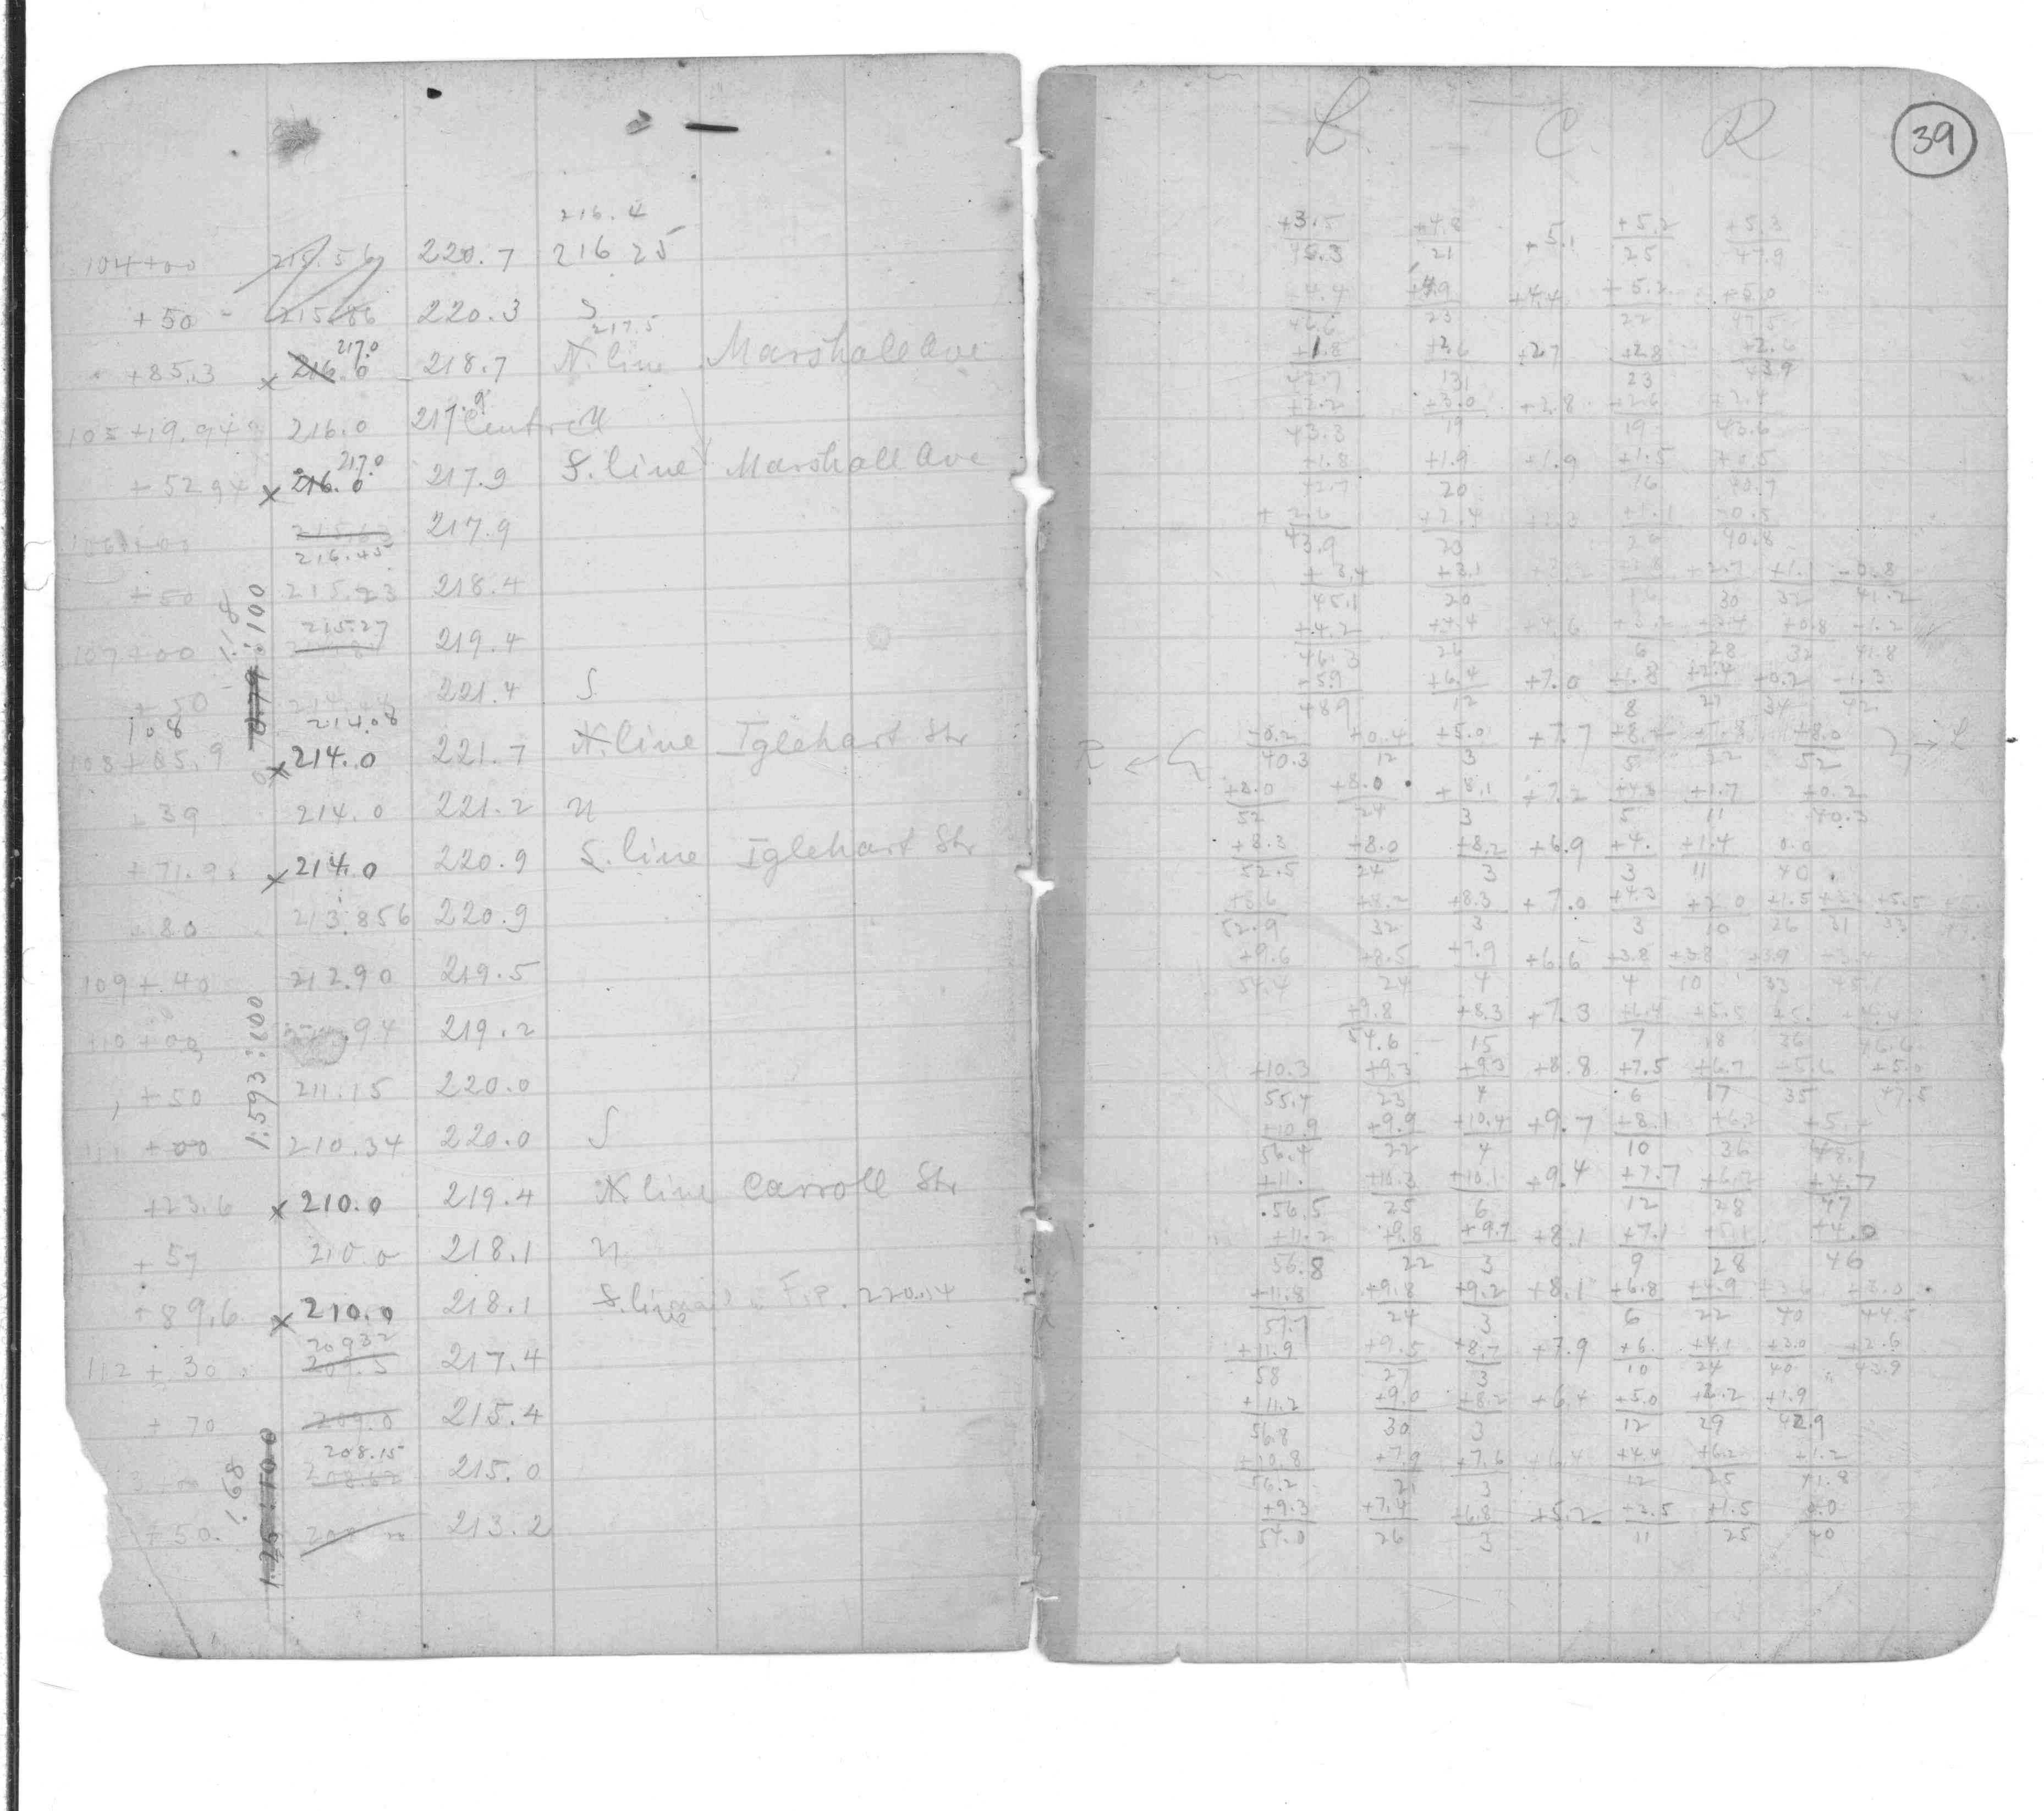 216.4
104+00 220.7 216 25
+50 215.86 220.3 S
217.0 217.5
+85.3 x 216.0 218.7 N. line Marshall Ave
105+19.94 216.0 217.9
217.0
+52.94 x 216.0 217.9 S. line Marshall Ave
106+00 217.9
216.45
+50 215.23 218.4
1.18
215.27
107+00 219.4
:100
+50 221.4 S
108 214.08
108+05.9 x 214.0 221.7 N. line Iglehart Str
+39 214.0 221.2 N
+71.9 x 214.0 220.9 S. line Iglehart Str
80 213.856 220.9
109+40 212.90 219.5
110+00 .94 219.2
1.593:100
+50 211.15 220.0
111+00 210.34 220.0 S
+23.6 x 210.0 219.4 N line Carroll Str
+57 210.0 218.1 N
+89.6 x 210.0 218.1 S. line F.P. 220.14
20932
112+30 209.5 217.4
+70 209.0 215.4
208.15
208.62 215.0
1.68
1.25:100
+50. 213.2
39
L. C. R
+3.5 +4.8 +5.1 +5.2 +5.3
21 25 47.9
+4.4 +4.9 +4.4 +5.2 +5.0
46.6 23 22 47.5
+1.8 +2.6 +2.7 +2.8 +2.6
42.7 23 43.9
+2.2 +3.0 +2.8 +2.6 +2.4
43.3 19 19 43.6
+1.8 +1.9 +1.9 +1.5 +0.5
42.7 20 16 40.7
+2.6 +2.4 +1.1 -0.5
43.9 20 40.8
+3.4 +3.1 +2.7 +1.1 -0.8
45.1 20 30 32 41.2
+4.2 +4.4 +4.6 +3.4 +0.8 -1.2
46.3 26 6 28 32 41.8
-5.9 +6.4 +7.0 +1.8 +2.4 +0.2 -1.3
48.9 12 8 27 34 42
R ← -0.2 +0.4 +5.0 +7.7 +8.2 +7.8 +8.0 → L
40.3 12 3 5 22 52
+8.0 +8.0 +8.1 +7.2 +4.3 +1.7 +0.2
52 24 3 5 11 40.3
+8.3 +8.0 +8.2 +6.9 +4. +1.4 0.0
52.5 24 3 3 11 40
+8.6 +8.2 +8.3 +7.0 +4.3 +2.0 +1.5 +5.5
52.9 32 3 3 10 26 31 33
+9.6 +8.5 +7.9 +6.6 +3.8 +3.8 +3.9 +3.4
54.4 24 4 4 10 33 45.1
+9.8 +8.3 +7.3 +6.4 +5.5 +5. +4.4
54.6 15 7 18 36 46.6
+10.3 +9.3 +9.3 +8.8 +7.5 +6.7 +5.6 +5.0
55.4 23 4 6 17 35 47.5
+10.9 +9.9 +10.4 +9.7 +8.1 +6.2
56.4 22 4 10 36 48.1
+11. +10.3 +10.1 +9.4 +7.7 +6.2 +4.7
56.5 25 6 12 28 47
+11.2 +9.8 +9.7 +8.1 +7.1 +5.1 +4.0
56.8 22 3 9 28 46
+11.8 +9.8 +9.2 +8.1 +6.8 +4.9 +3.6 +3.0
57.7 24 3 6 22 40 44.5
+11.9 +9.5 +8.7 +7.9 +6. +4.1 +3.0 +2.6
58 27 3 10 24 40 43.9
+11.2 +9.0 +8.2 +6.4 +5.0 +2.2 +1.9
56.8 30 3 12 29 42.9
+10.8 +7.9 +7.6 +6.4 +4.4 +6.2 +1.2
56.2 21 3 12 25 41.8
+9.3 +7.4 +6.8 +5.2 +3.5 +1.5 0.0
54.0 26 3 11 25 40